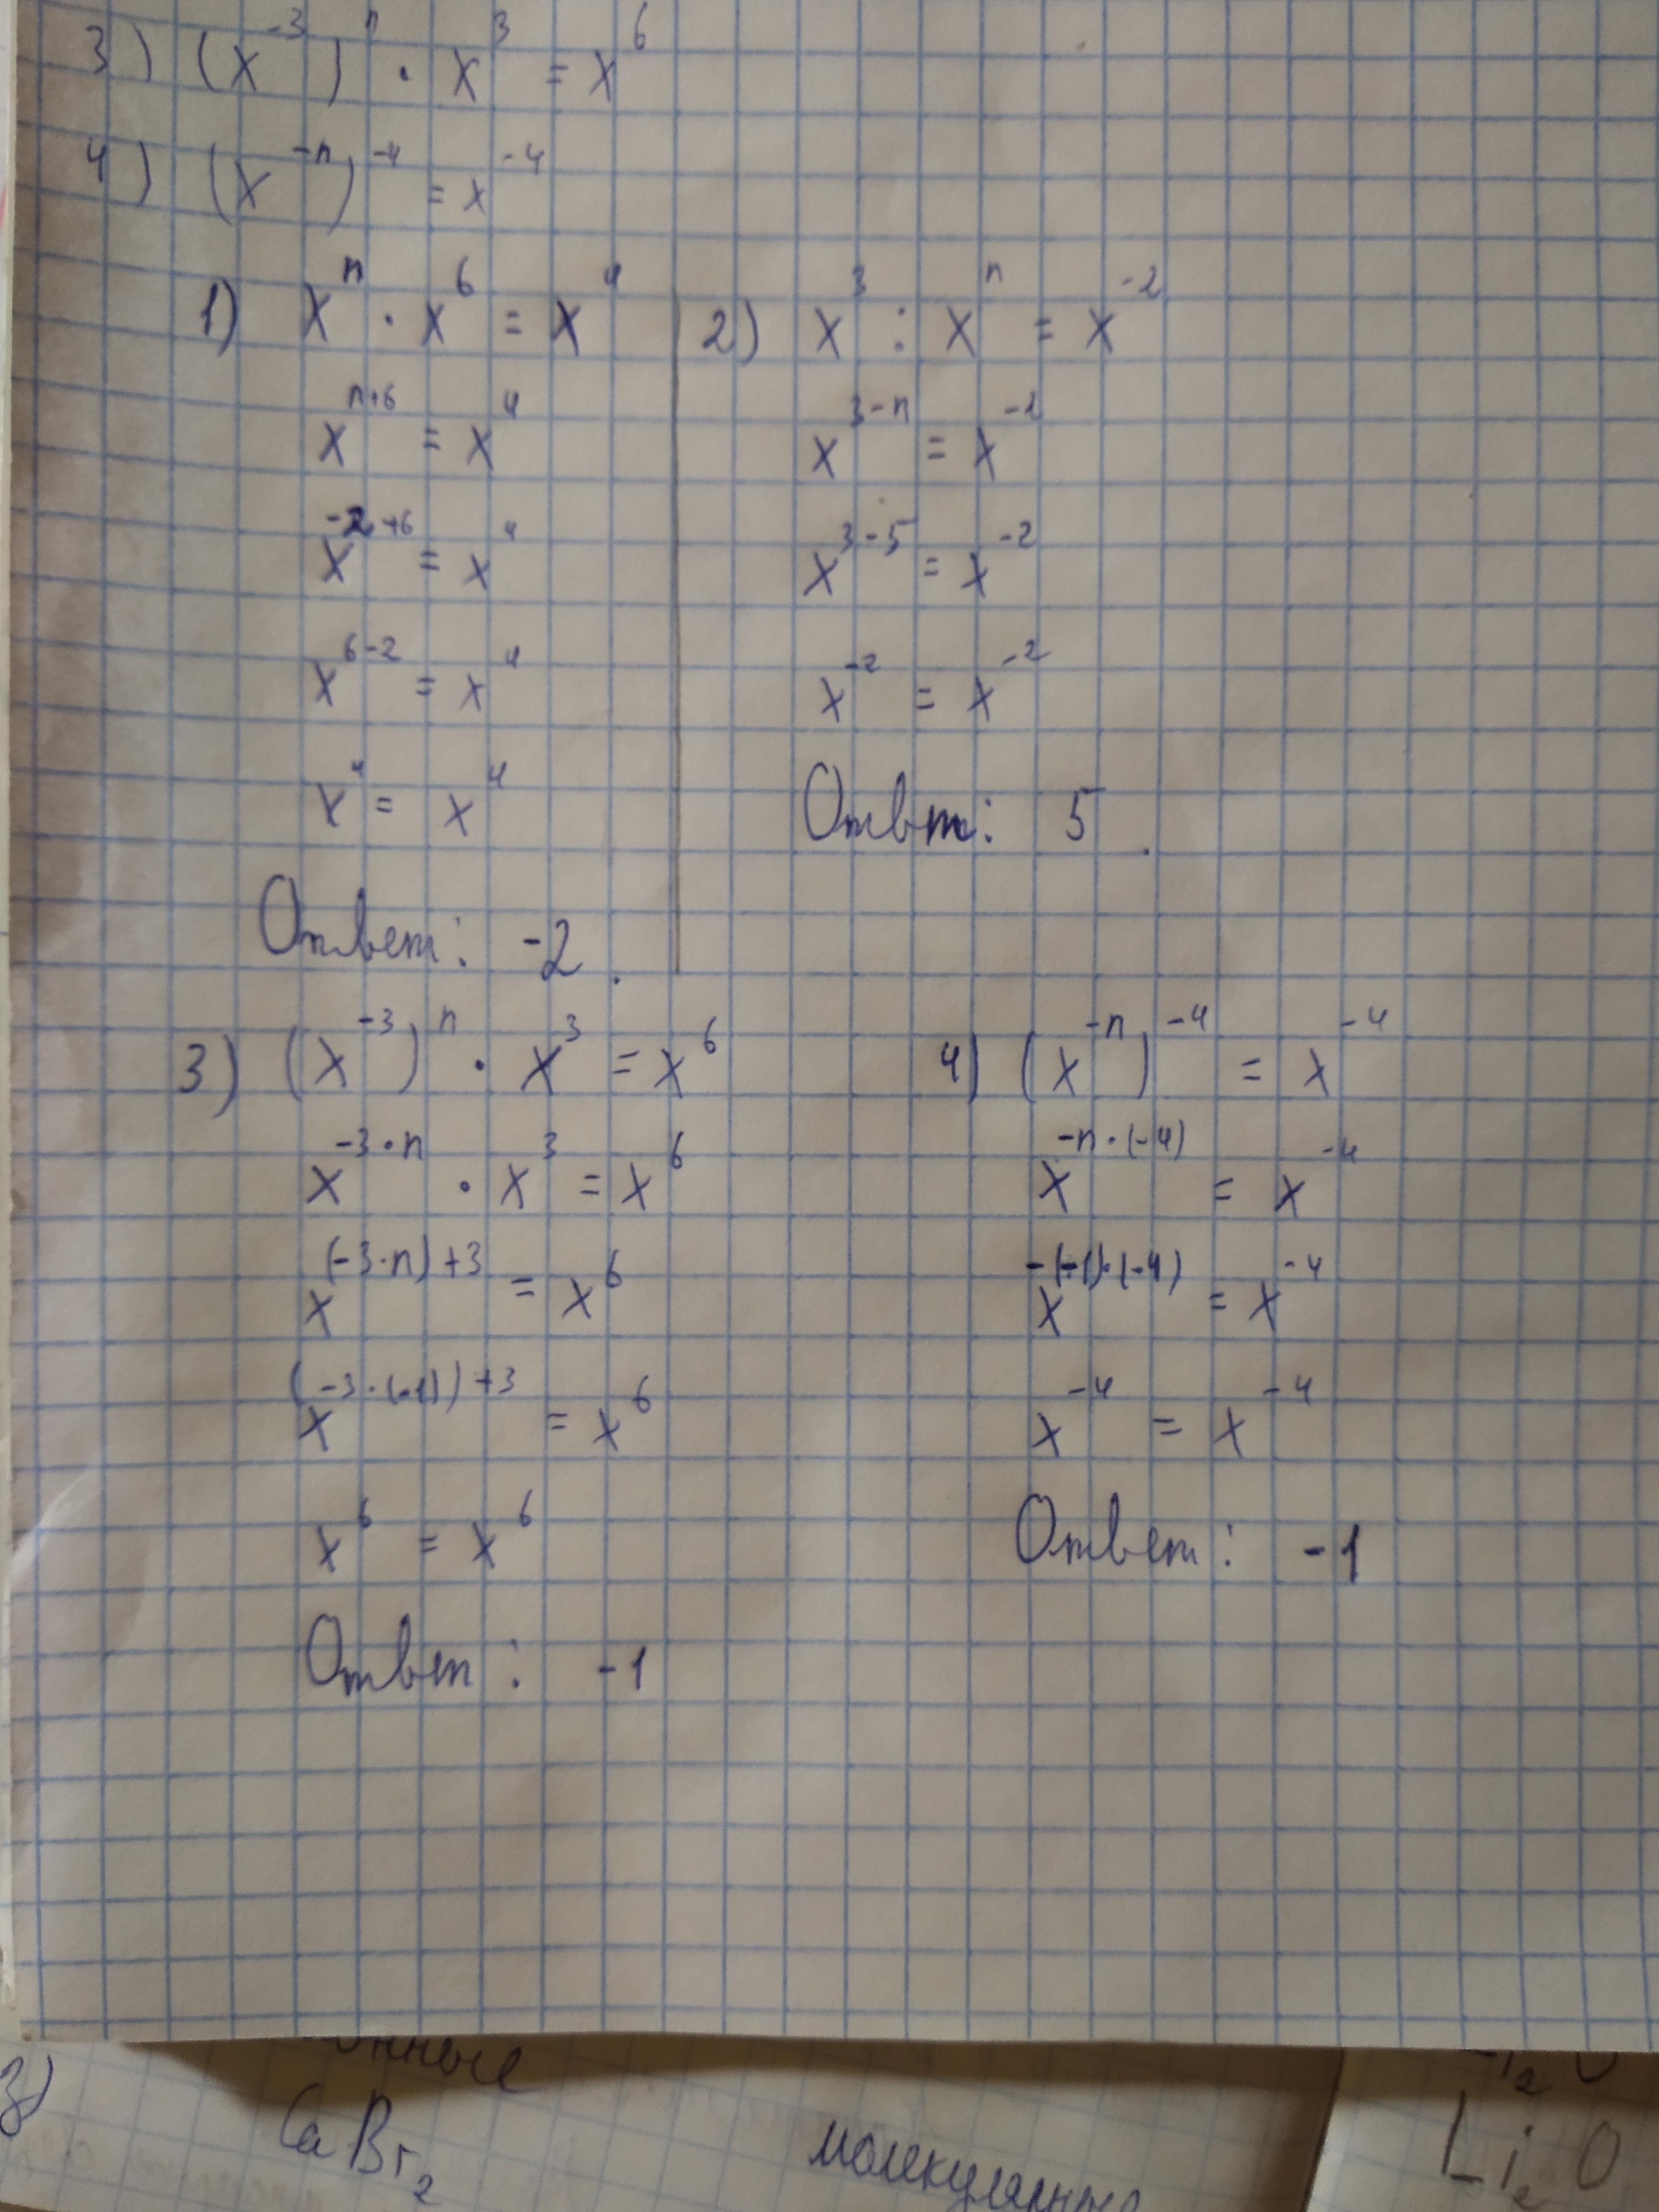 3) (x⁻³)ⁿ · x³ = x⁶
4) (x⁻ⁿ)⁻⁴ = x⁻⁴
1) xⁿ · x⁶ = x⁴
xⁿ⁺⁶ = x⁴
x⁻²⁺⁶ = x⁴
x⁶⁻² = x⁴
x⁴ = x⁴
Ответ: -2.
2) x³ : xⁿ = x⁻²
x³⁻ⁿ = x⁻²
x³⁻⁵ = x⁻²
x⁻² = x⁻²
Ответ: 5.
3) (x⁻³)ⁿ · x³ = x⁶
x^(-3·n) · x³ = x⁶
x^((-3·n)+3) = x⁶
x^((-3·(-1))+3) = x⁶
x⁶ = x⁶
Ответ: -1
4) (x⁻ⁿ)⁻⁴ = x⁻⁴
x^(-n·(-4)) = x⁻⁴
x^(-(-1)·(-4)) = x⁻⁴
x⁻⁴ = x⁻⁴
Ответ: -1
3)
CaBr₂
молекулярные
Li₂O